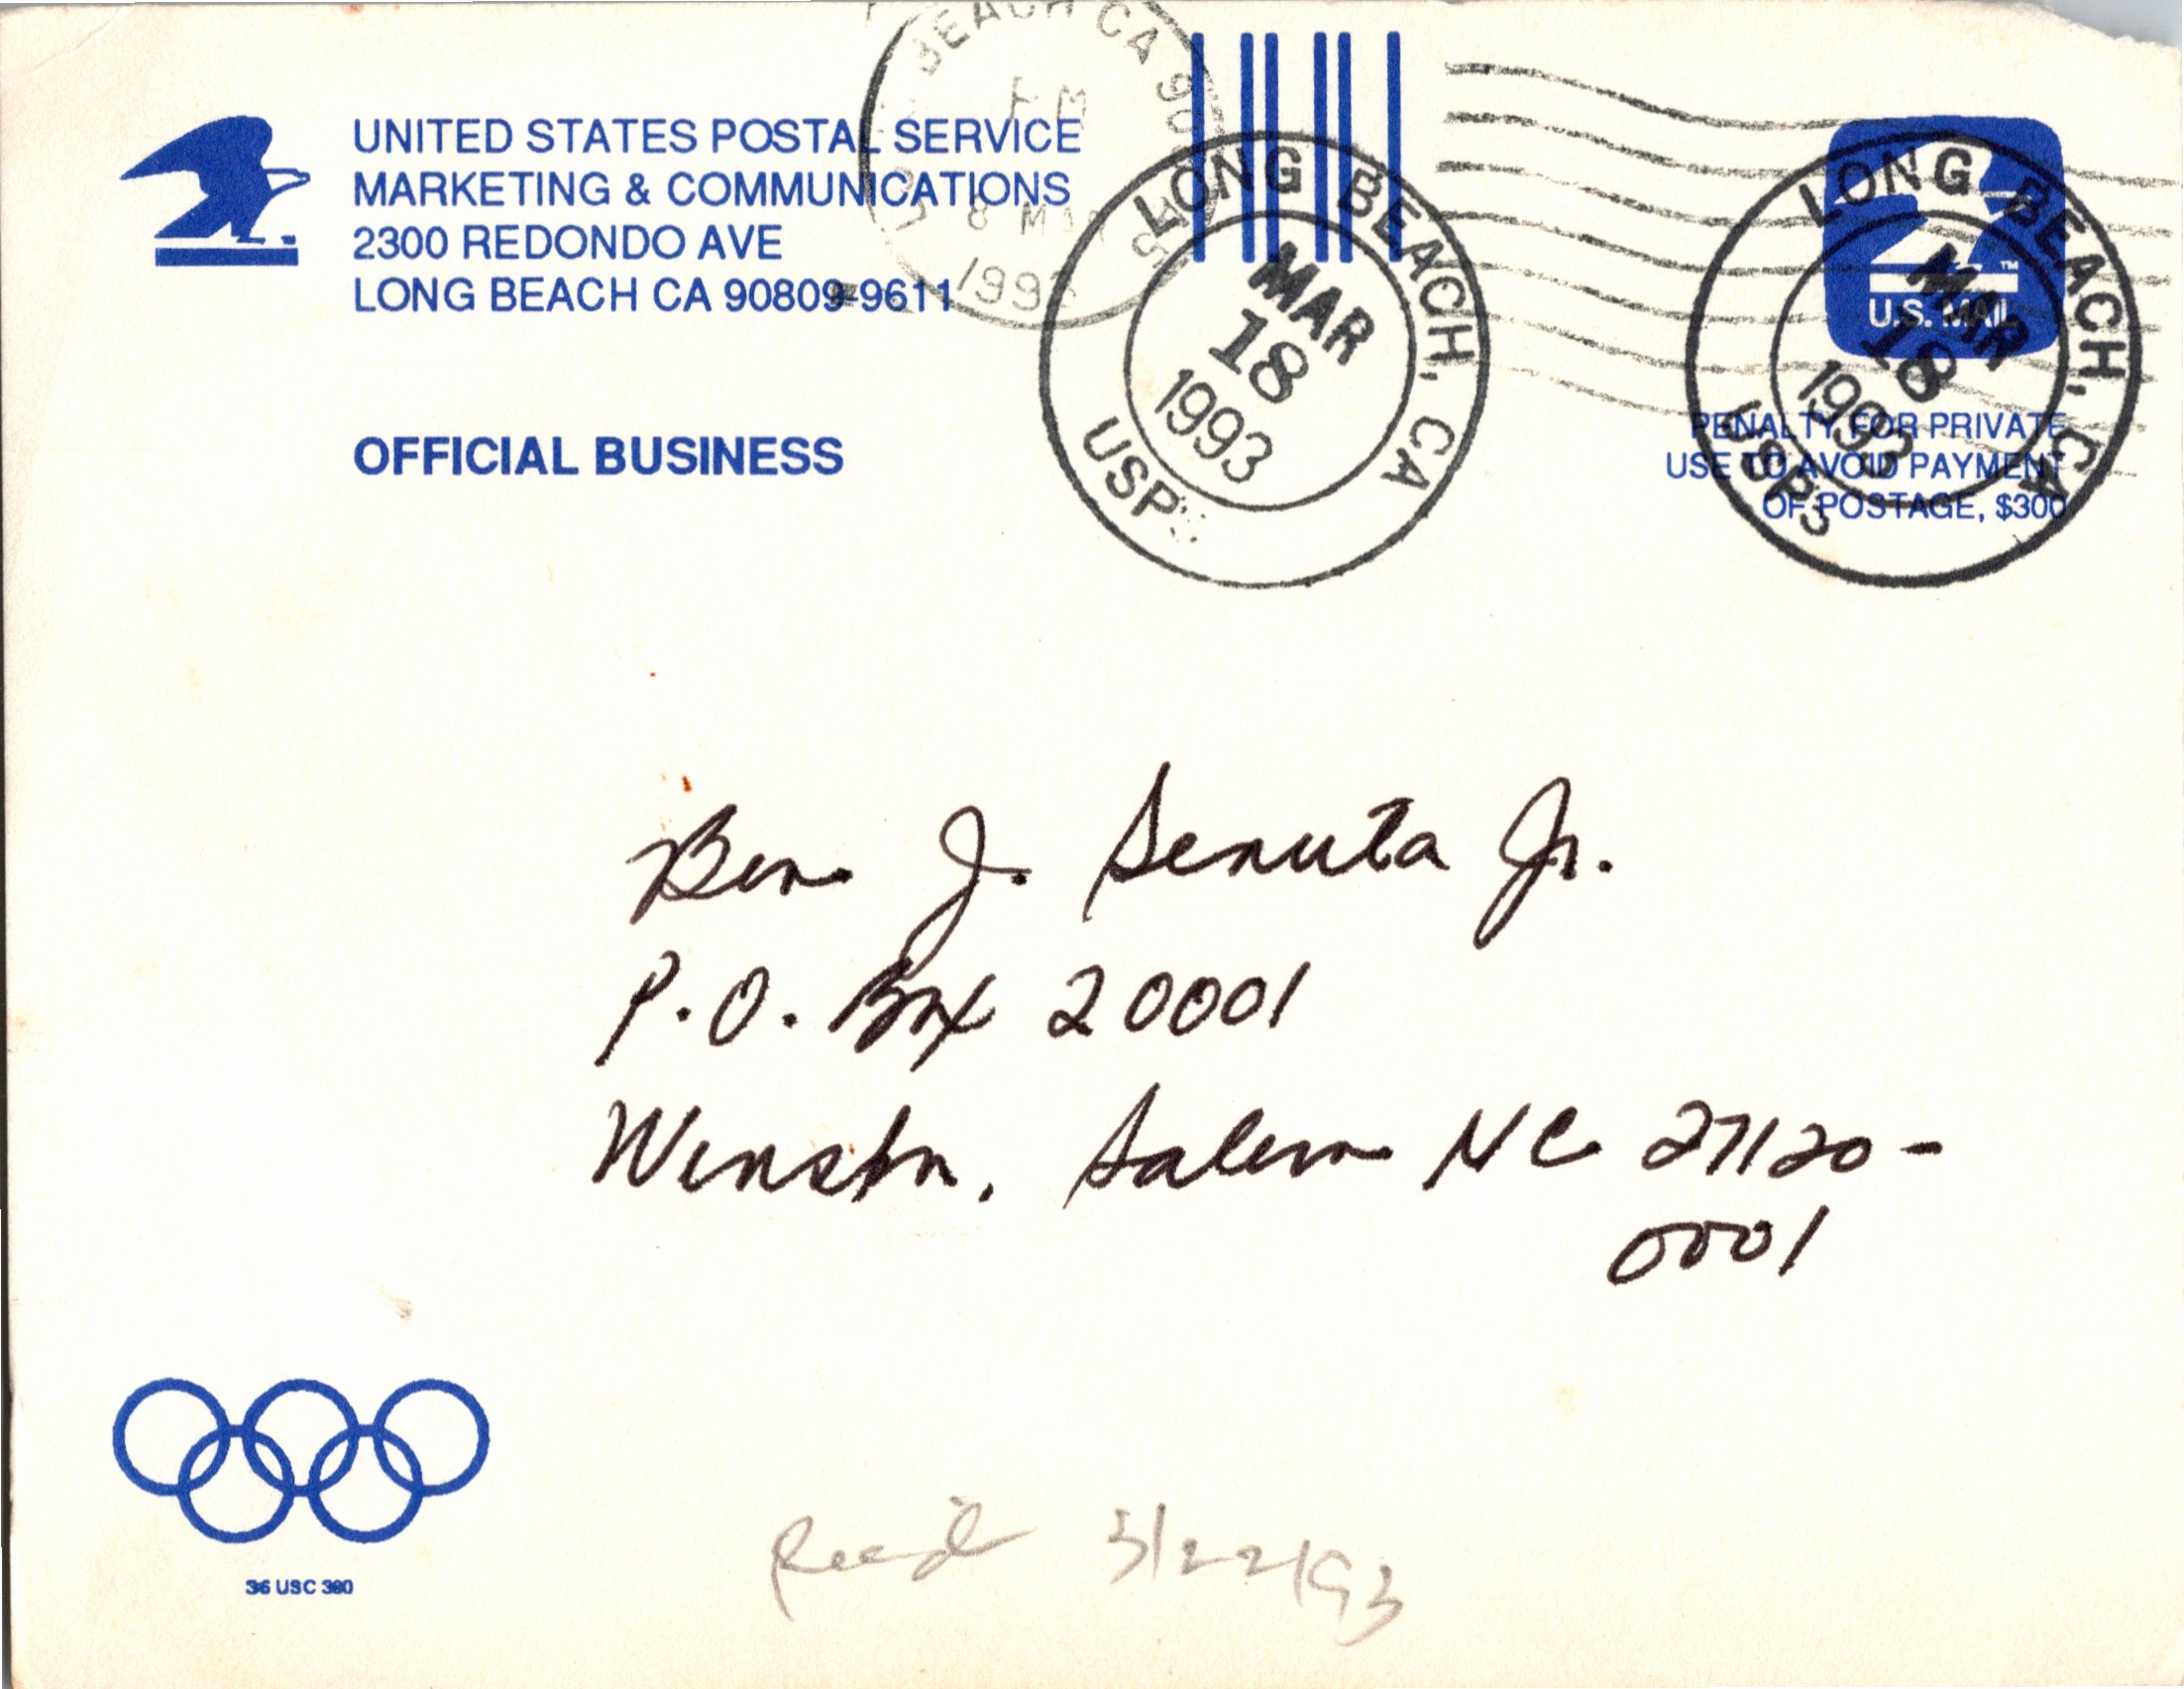 UNITED STATES POSTAL SERVICE
MARKETING & COMMUNICATIONS
2300 REDONDO AVE
LONG BEACH CA 90809-9611
OFFICIAL BUSINESS
BEACH CA 90
PM
8 MAR
1993
LONG BEACH, CA
MAR
18
1993
USPS
U.S. MAIL
LONG BEACH, CA
MAR
18
1993
USPS
PENALTY FOR PRIVATE
USE TO AVOID PAYMENT
OF POSTAGE, $300
Ben J. Senuta Jr.
P.O. Box 20001
Winston, Salem NC 27120-
0001
36 USC 380
Recd 3/22/93